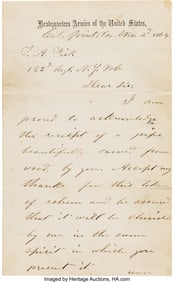 Headquarters Armies of the United States,
City Point Va. Nov. 2d 1864
122d Regt. N.Y. Vols.
Dear Sir,
I am
proud to acknowledge
the receipt of a pipe
beautifully carved from
wood, by you. Accept my
thanks for this token
of esteem and be assured
that it will be cherished
by me in the same
spirit in which you
present it.
Imaged by Heritage Auctions, HA.com